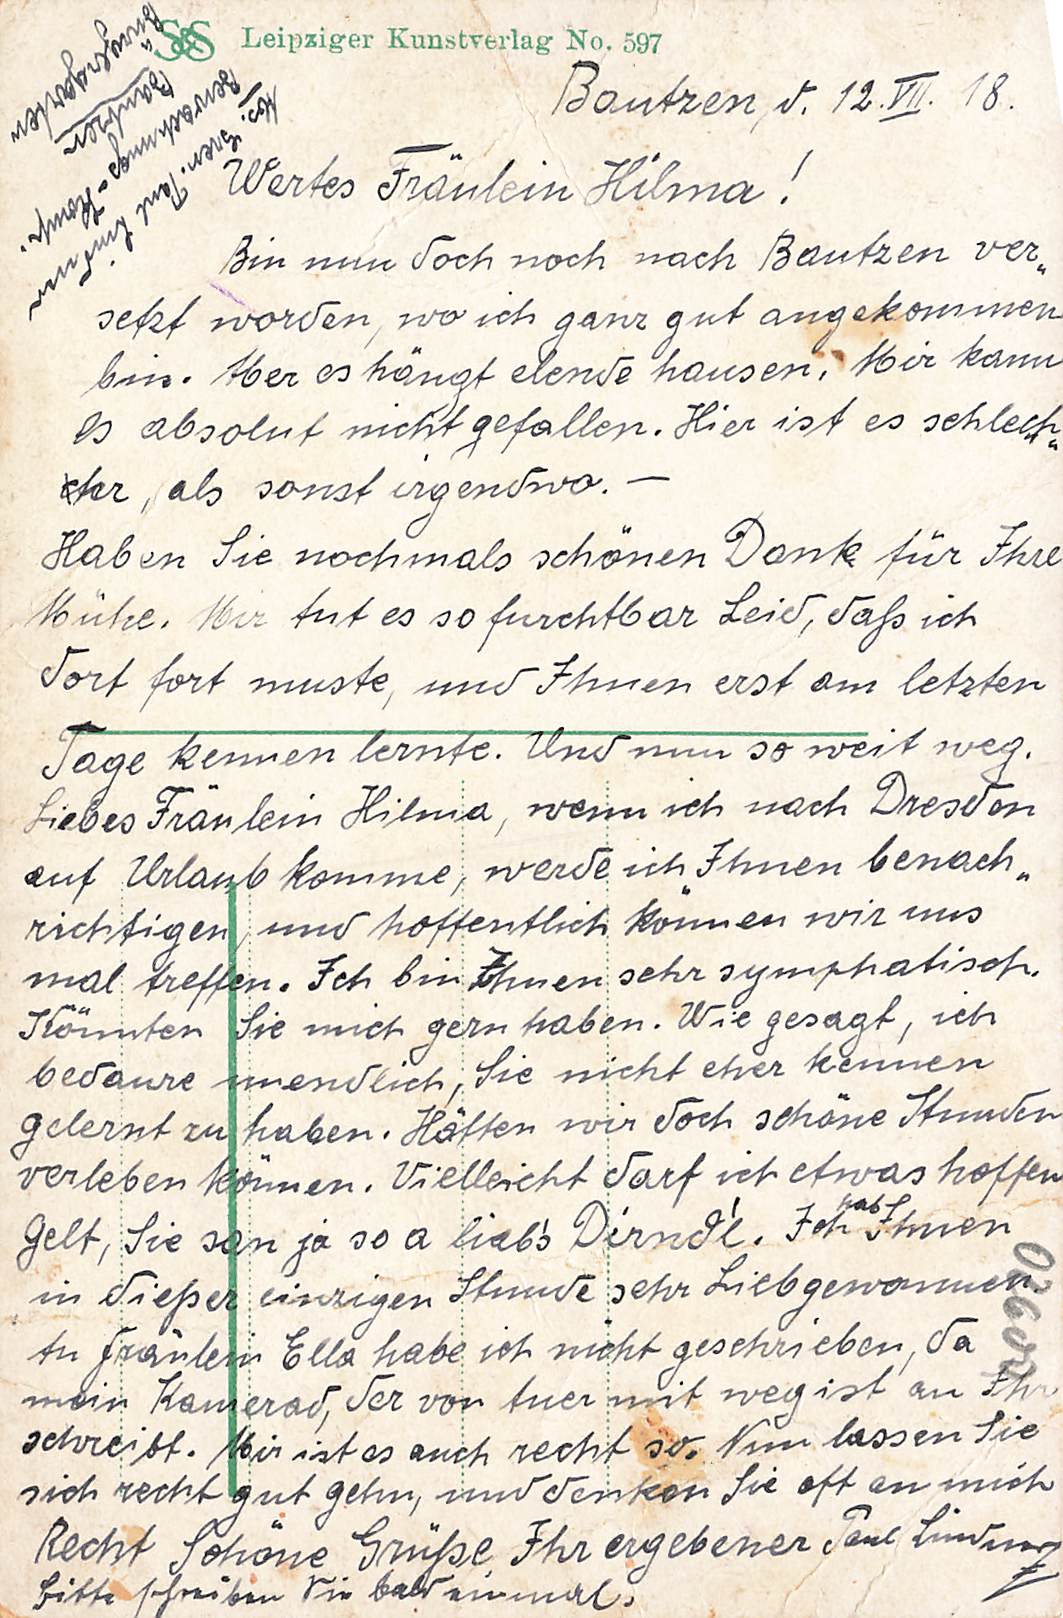 S&S Leipziger Kunstverlag No. 597
Bautzen, d. 12. VII. 18.
Abs.: Paul
Bewachungs-Komp.
Bautzen
Wertes Fräulein Hilma!
Bin nun doch noch nach Bautzen ver„
setzt worden, wo ich ganz gut angekommen
bin. Aber es hängt elende hausen. Mir kann
Es absolut nicht gefallen. Hier ist es schlech„
ter, als sonst irgendwo. —
Haben Sie nochmals schönen Dank für Ihre
Mühe. Mir tut es so furchtbar Leid, daß ich
dort fort muste, und Ihnen erst am letzten
Tage kennen lernte. Und nun so weit weg.
Liebes Fräulein Hilma, wenn ich nach Dresden
auf Urlaub komme, werde ich Ihnen benach„
richtigen, und hoffentlich können wir uns
mal treffen. Ich bin Ihnen sehr symphatisch.
Könnten Sie mich gern haben. Wie gesagt, ich
bedaure unendlich, Sie nicht eher kennen
gelernt zu haben. Hätten wir doch schöne Stunden
verleben können. Vielleicht darf ich etwas hoffen
Gelt, Sie san ja so a liab's Dirnd'l. Ich hab Ihnen
in dießer einzigen Stunde sehr Liebgewonnen
An Fräulein Ella habe ich nicht geschrieben, da
mein Kamerad, der von hier mit weg ist an Ihr
schreibt. Mir ist es auch recht so. Nun lassen Sie
sich recht gut gehn, und denken Sie oft an mich
Recht Schöne Grüße Ihr ergebener Paul
Bitte schreiben Sie bald einmal.